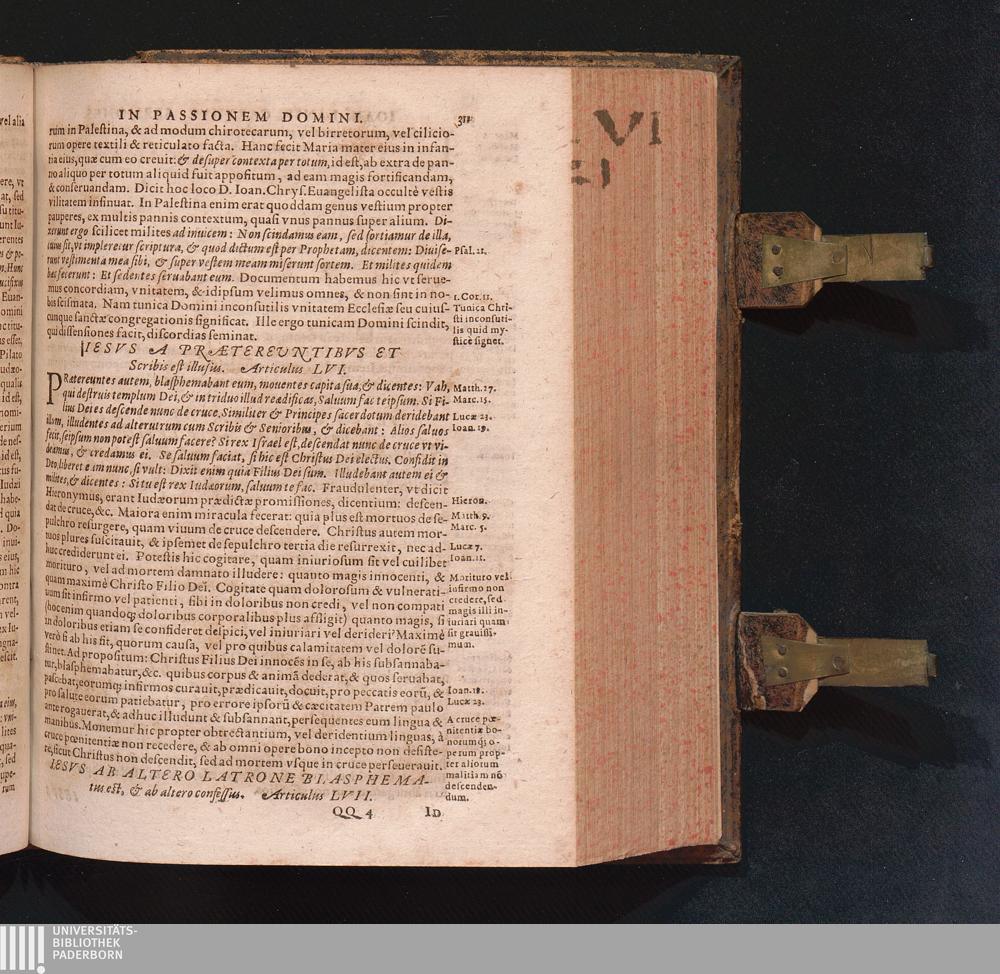 IN PASSIONEM DOMINI. 311
rum in Palestina, & ad modum chirotecarum, vel birretorum, vel cilicio-
rum opere textili & reticulato facta. Hanc fecit Maria mater eius in infan-
tia eius, quæ cum eo creuit: & desuper contexta per totum, id est, ab extra de pan-
no aliquo per totum aliquid fuit appositum, ad eam magis fortificandam,
& conseruandam. Dicit hoc loco D. Ioan. Chrys. Euangelista occultè vestis
vilitatem insinuat. In Palestina enim erat quoddam genus vestium propter
pauperes, ex multis pannis contextum, quasi vnus pannus super alium. Di-
xerunt ergo scilicet milites ad inuicem: Non scindamus eam, sed sortiamur de illa,
cuius sit, vt impleretur scriptura, & quod dictum est per Prophetam, dicentem: Diuise-
runt vestimenta mea sibi, & super vestem meam miserunt sortem. Et milites quidem
hæc fecerunt: Et sedentes seruabant eum. Documentum habemus hic vt serue-
mus concordiam, vnitatem, & idipsum velimus omnes, & non sint in no-
bis scismata. Nam tunica Domini inconsutilis vnitatem Ecclesiæ seu cuius-
cunque sanctæ congregationis significat. Ille ergo tunicam Domini scindit,
qui dissensiones facit, discordias seminat.
Psal. 21.
1. Cor. 11.
Tunica Chri-
sti inconsuti-
lis quid my-
sticè signet.
IESVS A PRÆTEREVNTIBVS ET
Scribis est illusus. Articulus LVI.
PRætereuntes autem, blasphemabant eum, mouentes capita sua, & dicentes: Vah,
qui destruis templum Dei, & in triduo illud reædificas, Saluum fac teipsum. Si Fi-
lius Dei es descende nunc de cruce. Similiter & Principes sacerdotum deridebant
illum, illudentes ad alterutrum cum Scribis & Senioribus, & dicebant: Alios saluos
fecit, seipsum non potest saluum facere? Si rex Israel est, descendat nunc de cruce vt vi-
deamus, & credamus ei. Se saluum faciat, si hic est Christus Dei electus. Confidit in
Deo, liberet eum nunc, si vult: Dixit enim quia Filius Dei sum. Illudebant autem ei &
milites, & dicentes: Si tu est rex Iudæorum, saluum te fac. Fraudulenter, vt dicit
Hieronymus, erant Iudæorum prædictæ promissiones, dicentium: descen-
dat de cruce, &c. Maiora enim miracula fecerat: quia plus est mortuos de se-
pulchro resurgere, quam viuum de cruce descendere. Christus autem mor-
tuos plures suscitauit, & ipsemet de sepulchro tertia die resurrexit, nec ad-
huc crediderunt ei. Potestis hic cogitare, quam iniuriosum sit vel cuilibet
morituro, vel ad mortem damnato illudere: quanto magis innocenti, &
quam maximè Christo Filio Dei. Cogitate quam dolorosum & vulnerati-
uum sit infirmo vel patienti, sibi in doloribus non credi, vel non compati
(hoc enim quandoq; doloribus corporalibus plus affligit) quanto magis, si
in doloribus etiam se consideret despici, vel iniuriari vel derideri? Maximè
verò si ab his sit, quorum causa, vel pro quibus calamitatem vel dolorē su-
stinet. Ad propositum: Christus Filius Dei innocēs in se, ab his subsannaba-
tur, blasphemabatur, &c. quibus corpus & animā dederat, & quos seruabat,
pascebat, eorumq; infirmos curauit, prædicauit, docuit, pro peccatis eorū, &
pro salute eorum patiebatur, pro errore ipsorū & cæcitatem Patrem paulo
ante rogauerat, & adhuc illudunt & subsannant, persequentes eum lingua &
manibus. Monemur hic propter obtrectantium, vel deridentium linguas, à
cruce pœnitentiæ non recedere, & ab omni opere bono incepto non desiste-
re, sicut Christus non descendit, sed ad mortem vsque in cruce perseuerauit.
Matth. 27.
Marc. 15.
Lucæ 23.
Ioan. 19.
Hieron.
Matth. 9.
Marc. 5.
Lucæ 7.
Ioan. 11.
Morituro vel
infirmo non
credere, sed
magis illi in-
iuriari quam
sit grauissi-
mum.
Ioan. 18.
Lucæ 23.
A cruce pœ-
nitentiæ bo-
norumq; o-
perum prop-
ter aliorum
malitiam nō
descenden-
dum.
IESVS AB ALTERO LATRONE BLASPHEMA-
tus est, & ab altero confessus. Articulus LVII.
QQ 4 ID
VI
UNIVERSITÄTS-
BIBLIOTHEK
PADERBORN